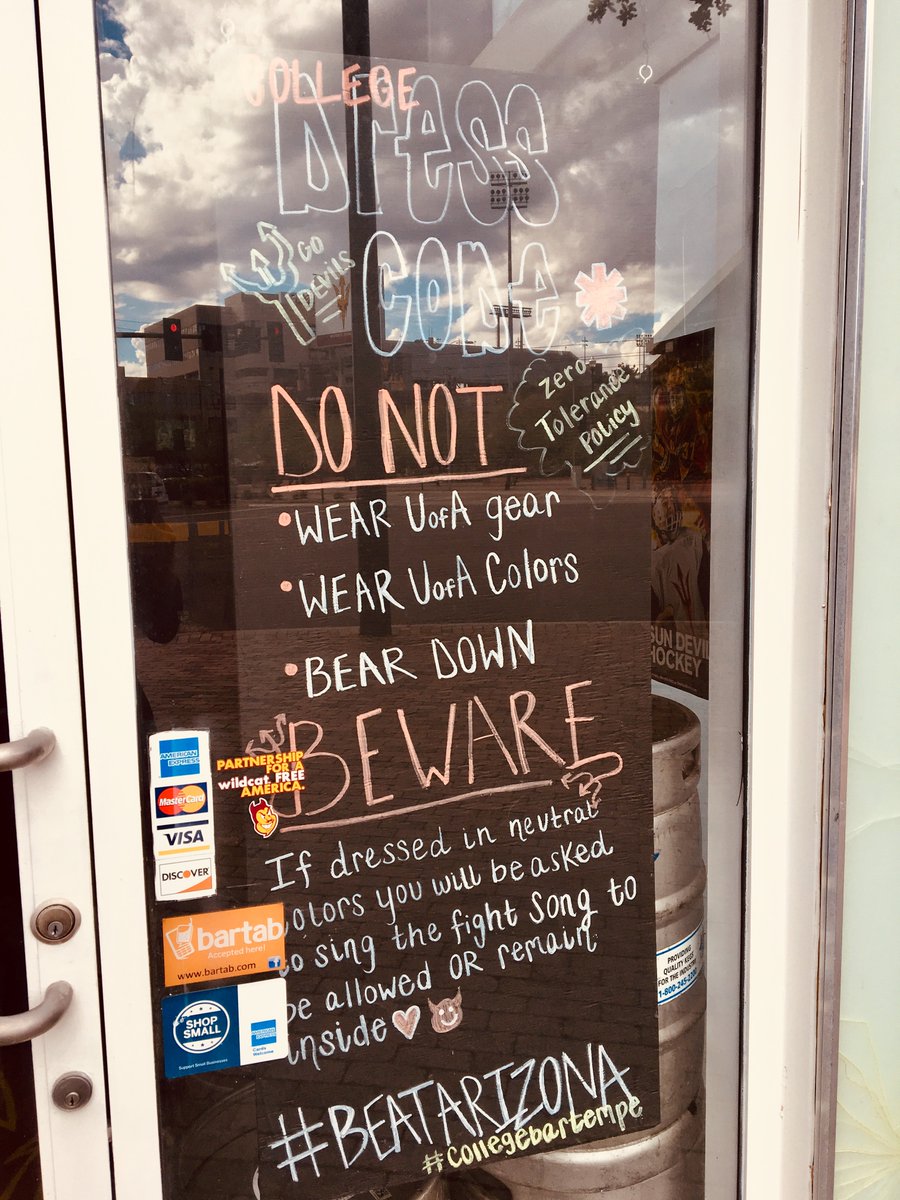 COLLEGE
Dress
Code
GO
DEVILS
Zero
Tolerance
Policy
DO NOT
•WEAR UofA gear
•WEAR UofA Colors
•BEAR DOWN
BEWARE
If dressed in neutral
colors you will be asked
to sing the fight song to
be allowed OR remain
inside
#BEATARIZONA
#collegebartempe
AMERICAN
EXPRESS
MasterCard
VISA
DISCOVER
PARTNERSHIP
FOR A
wildcat FREE
AMERICA.
bartab
Accepted here!
www.bartab.com
SHOP
SMALL
AMERICAN
EXPRESS
Cards
Welcome
Support Small Businesses
SUN DEVIL
HOCKEY
PROVIDING
QUALITY KEGS
FOR THE INDUSTRY